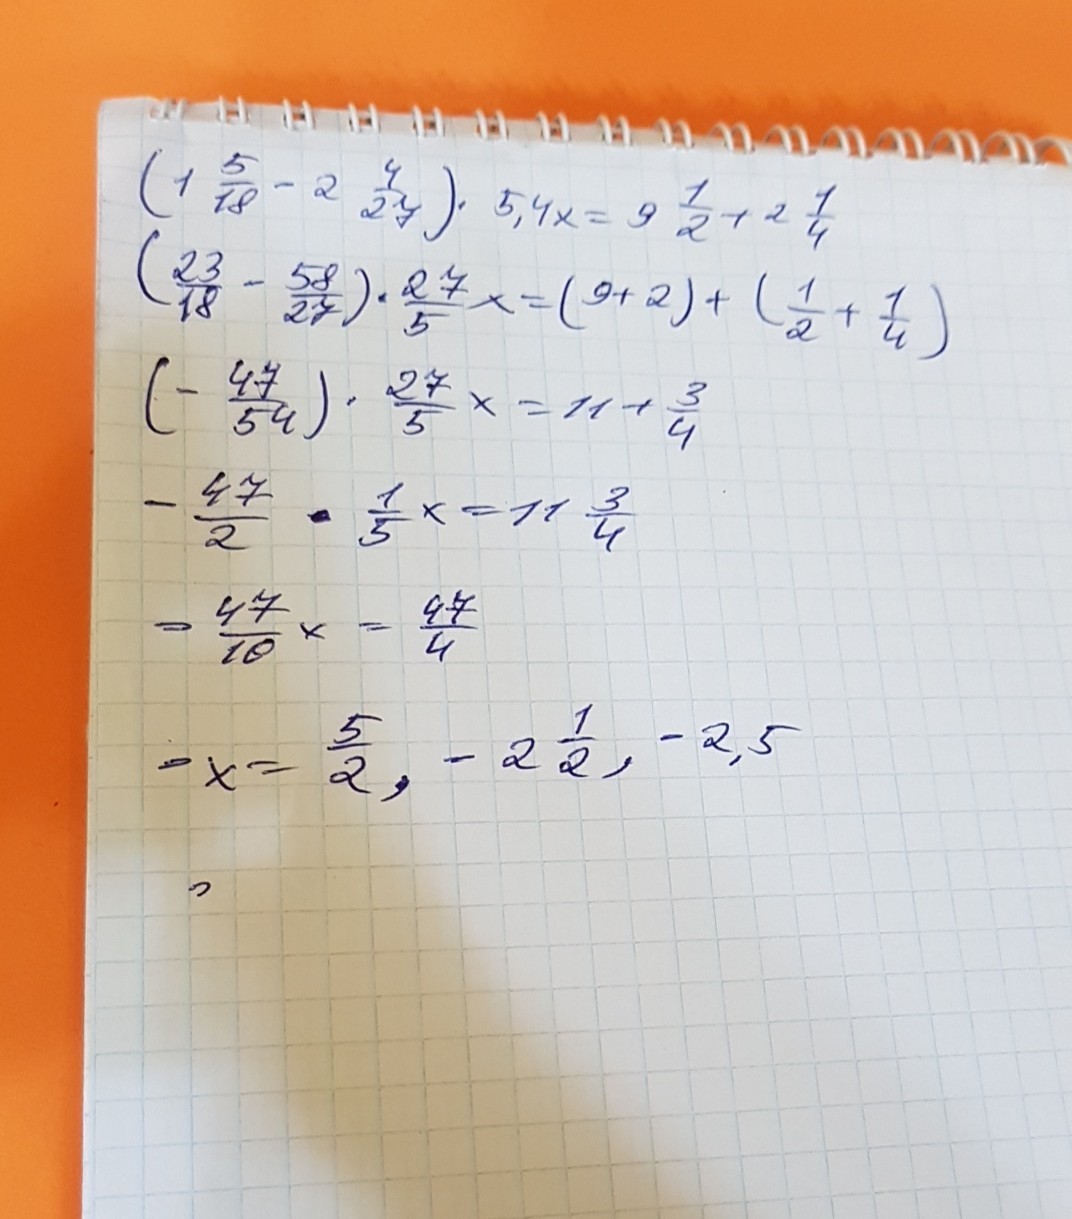 (1 5/18 - 2 4/27) · 5,4x = 9 1/2 + 2 1/4
(23/18 - 58/27) · 27/5 x = (9+2) + (1/2 + 1/4)
(- 47/54) · 27/5 x = 11 + 3/4
- 47/2 · 1/5 x = 11 3/4
- 47/10 x = 47/4
- x = 5/2, - 2 1/2, - 2,5